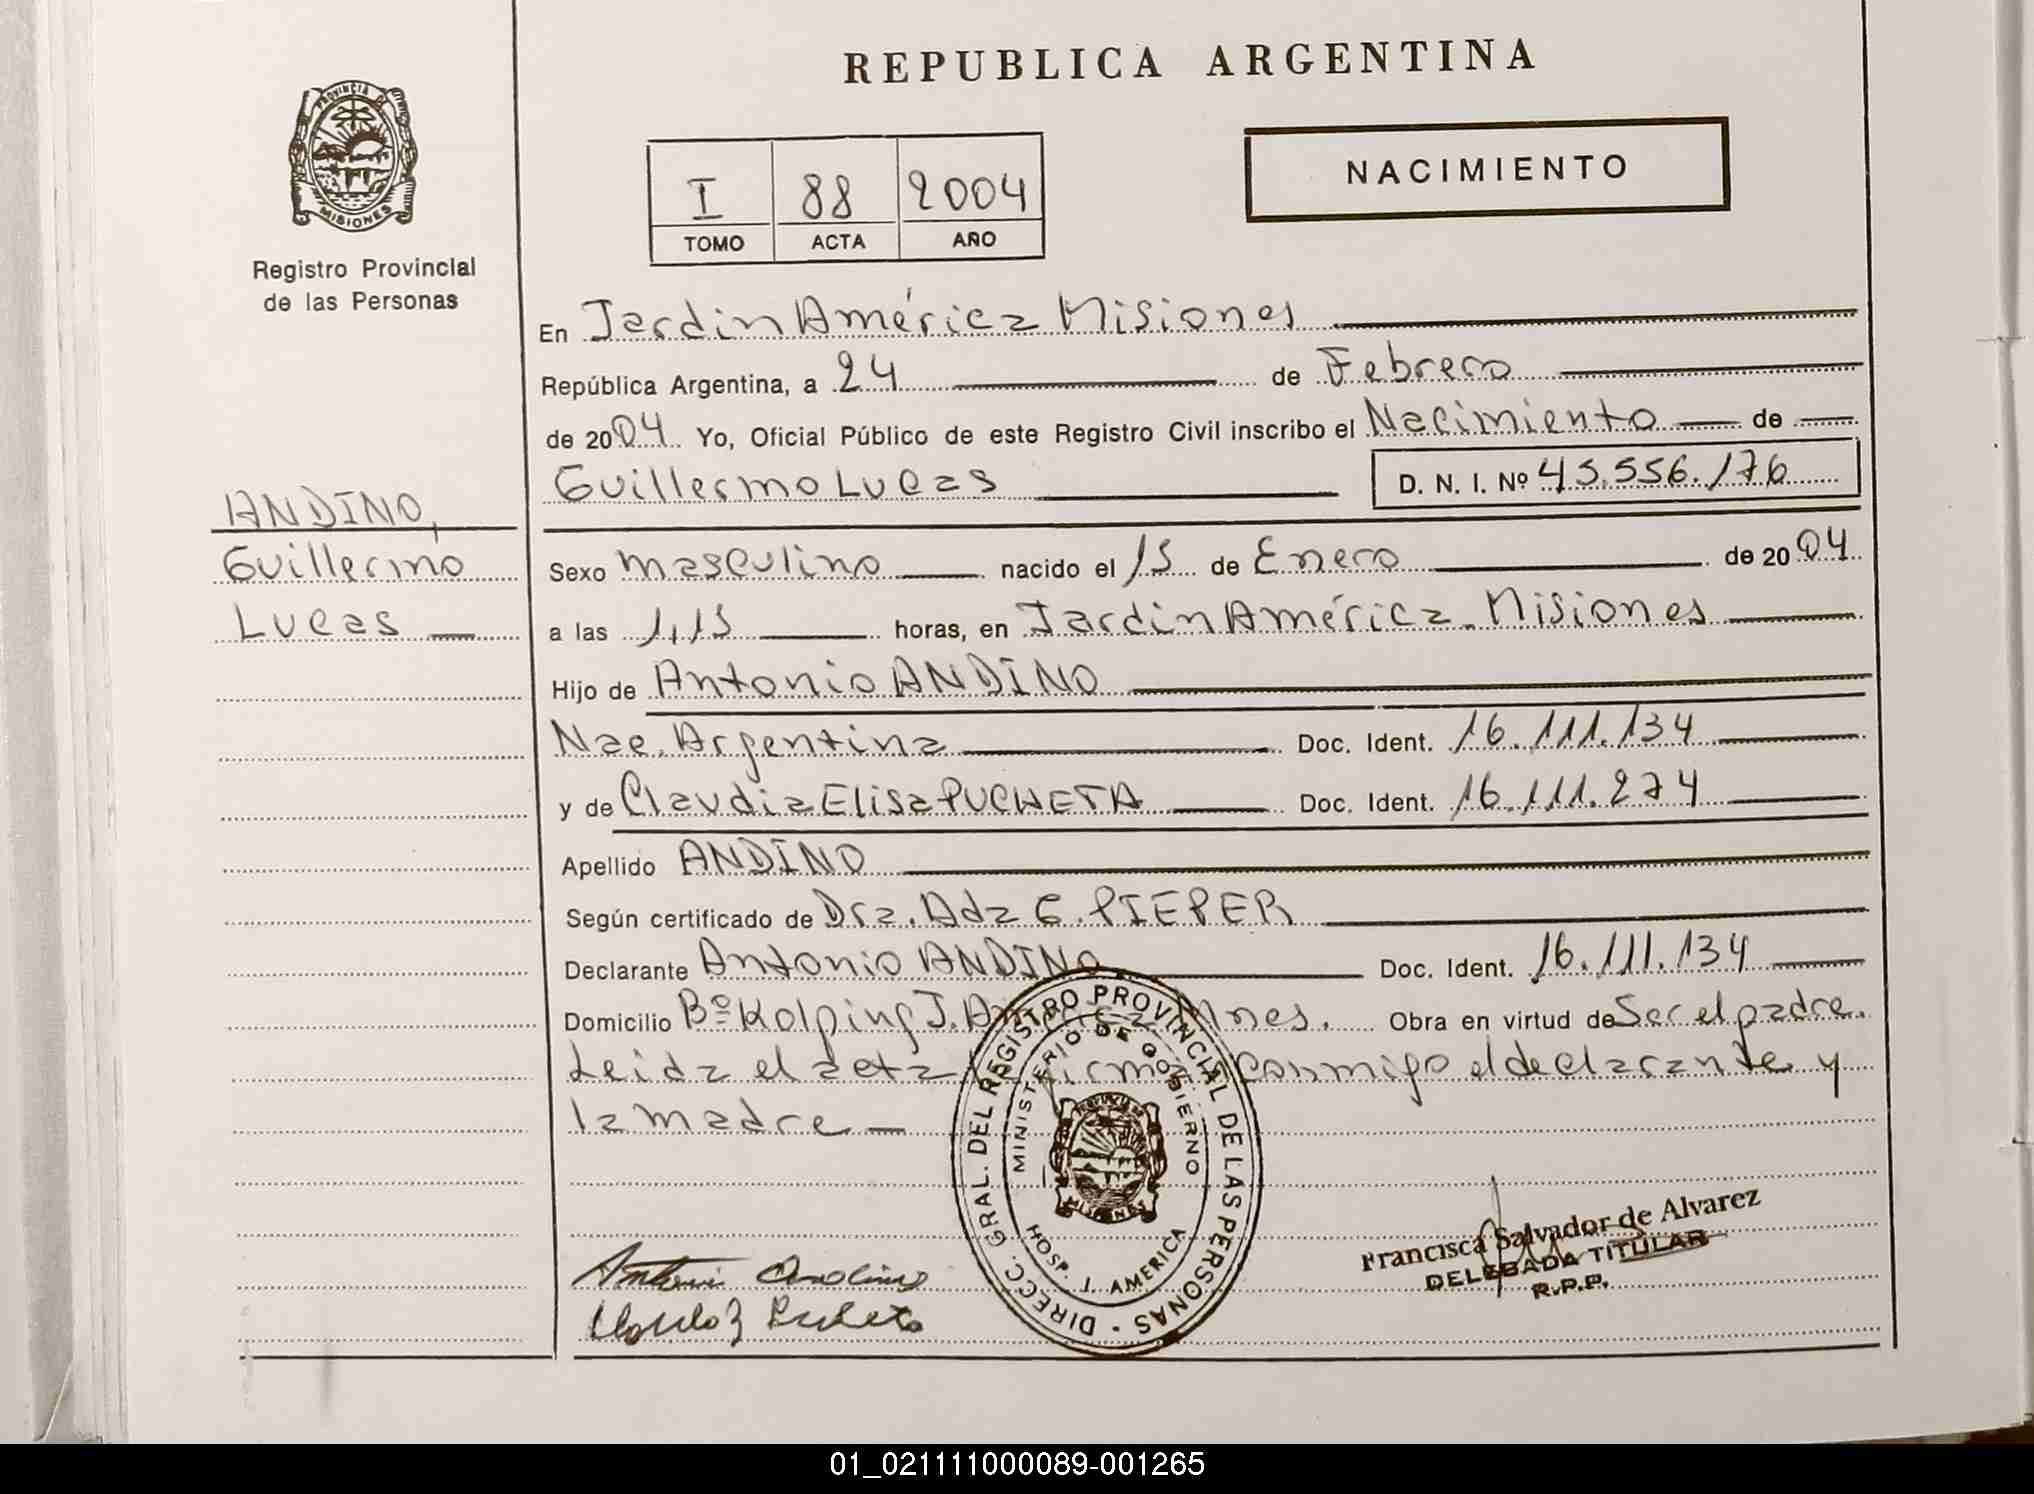 REPUBLICA ARGENTINA
PROVINCIA DE
MISIONES
Registro Provincial
de las Personas
NACIMIENTO
I 88 2004
TOMO ACTA AÑO
En Jardin América Misiones
República Argentina, a 24 de Febrero
de 2004 Yo, Oficial Público de este Registro Civil inscribo el Nacimiento de
Guillermo Lucas D. N. I. Nº 45.556.176
ANDINO,
Guillermo
Lucas
Sexo masculino nacido el 15 de Enero de 2004
a las 1,15 horas, en Jardin América. Misiones
Hijo de Antonio ANDINO
Nac. Argentina Doc. Ident. 16.111.134
y de Claudia Elisa PUCHETA Doc. Ident. 16.111.274
Apellido ANDINO
Según certificado de Dra. Ada G. PIEPER
Declarante Antonio ANDINO Doc. Ident. 16.111.134
Domicilio Bº Kolping J. América Mnes. Obra en virtud de Ser el padre.
Leida el acta firma conmigo el declarante y
la madre
DIRECC. GRAL. DEL REGISTRO PROVINCIAL DE LAS PERSONAS
MINISTERIO DE GOBIERNO
MISIONES
HOSP. J. AMERICA
Francisca Salvador de Alvarez
DELEGADA TITULAR
R.P.P.
Antonio Andino
Pucheta
01_021111000089-001265